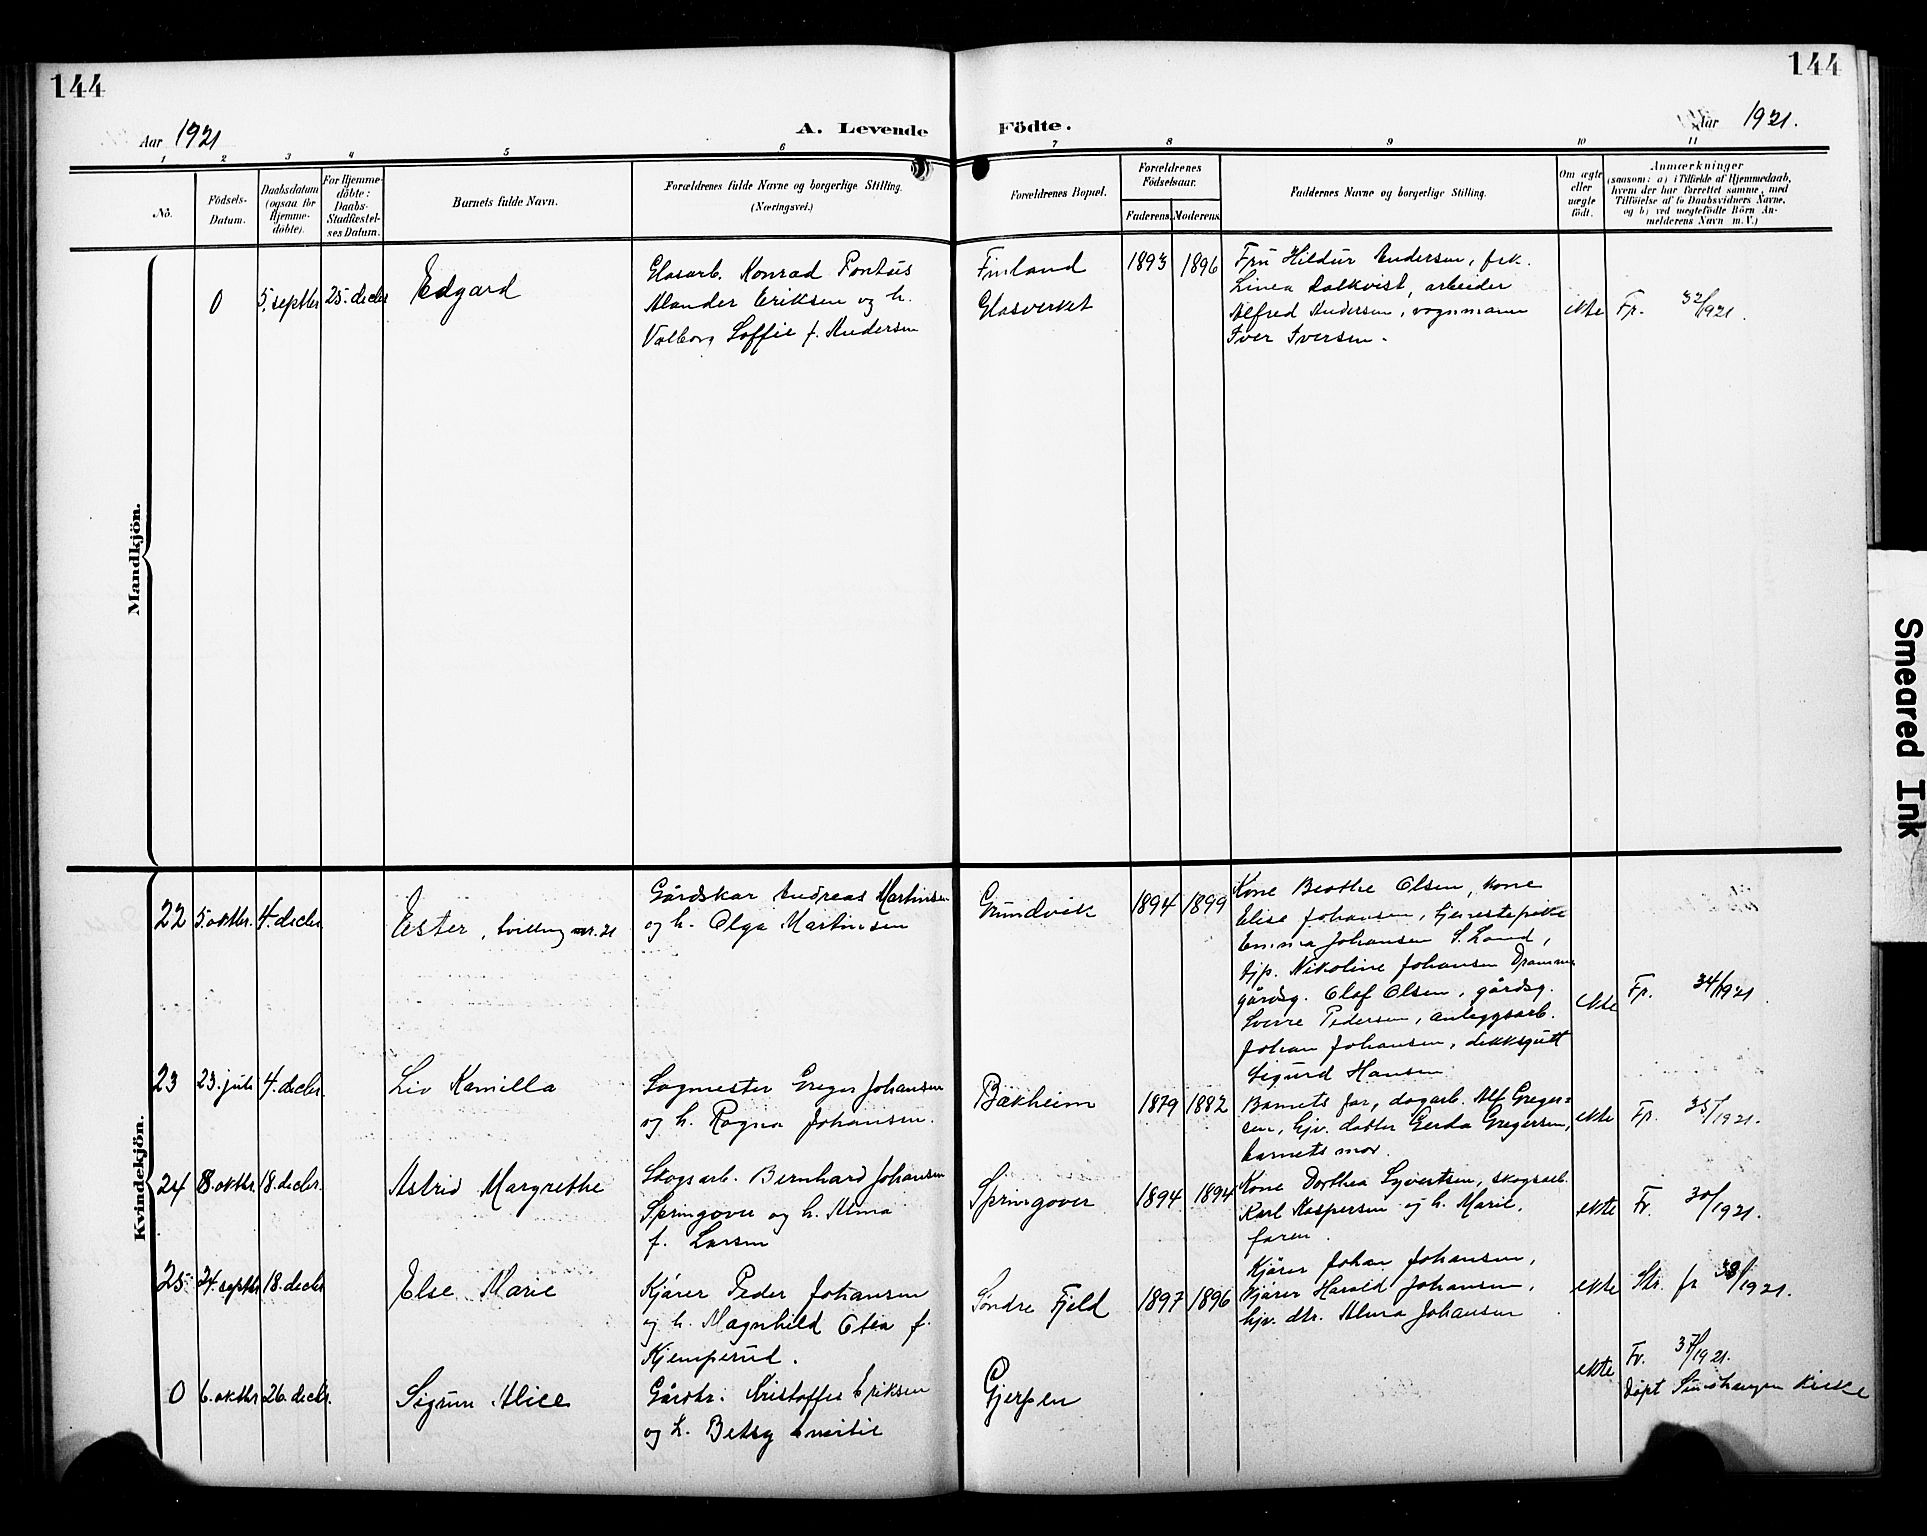 144
144
Aar 1921
A. Levende Födte.
Aar 1921.
1 2 3 4 5 6 7 8 9 10 11
No.
Födsels-
Datum.
Daabsdatum
(ogsaa for
Hjemme-
döbte).
For Hjemme-
döbte:
Daabs-
Stadfæstel-
ses Datum.
Barnets fulde Navn.
Forældrenes fulde Navne og borgerlige Stilling.
(Næringsvei.)
Forældrenes Bopæl.
Forældrenes
Födselsaar.
Faderens.
Moderens.
Faddernes Navne og borgerlige Stilling.
Om ægte
eller
uægte
født.
Anmærkninger
(saasom: a) i Tilfælde af Hjemmedaab,
hvem der har forrettet samme, med
Tilföielse af to Daabsvidners Navne,
og b) ved uægtefödte Börn An-
melderens Navn m.V.)
Mandkjön.
0
5. septbr
25. decbr
Edgard
Glasarb. Konrad Pontus
Alander Eriksen og h.
Valborg Soffie f. Andersen
Finland
Glasverket
1893
1896
Fru Hildur Andersen, frk.
Linea Dalkvist, arbeider
Alfred Andersen, vognmann
Iver Iversen.
ekte
Fp. 32/1921.
Kvindekjön.
22
5. oktbr.
4. decbr.
Ester, tvilling nr. 21
Gårdskar Andreas Martinsen
og h. Olga Martinsen
Grundvik
1894
1899
Kone Beathe Olsen, kone
Elise Johansen, tjenestepike
Emma Johansen S. Land,
tjp. Nikoline Johansen Drammen
gårdsg. Olaf Olsen, gårdsg.
Sverre Pedersen, anleggsarb.
Johan Johansen, dekksgutt
Sigurd Hansen
ekte
Fp. 34/1921.
23
23. juli
4. decbr.
Liv Kamilla
Sagmester Greger Johansen
og h. Ragna Johansen.
Bækheim
1879
1882
Barnets far, dagarb. Alf Greger=
sen, hjv. datter Gerda Gregersen,
barnets mor.
ekte
Fp. 35/1921.
24
8. oktbr.
18. decbr.
Astrid Margrethe
Skogsarb. Bernhard Johansen
Springover og h. Alma
f. Larsen
Springover
1894
1894
Kone Dorthea Syvertsen, skogsarb.
Karl Kaspersen og h. Marie,
faren.
ekte
Fr. 30/1921.
25
24. septbr
18. decbr
Else Marie
Kjører Peder Johansen
og h. Magnhild Otea f.
Kjemperud.
Søndre Fjeld
1897
1896
Kjører Johan Johansen,
kjører Harald Johansen,
hjv. dtr. Alma Johansen
ekte
Str. fr 38/1921.
0
6. oktbr
26. decbr.
Sigrun Alice
Gårdbr. Kristoffer Eriksen
og h. Betsy Emilie
Gjerpen
ekte
Fr. 37/1921.
døpt Kirke
Smeared Ink